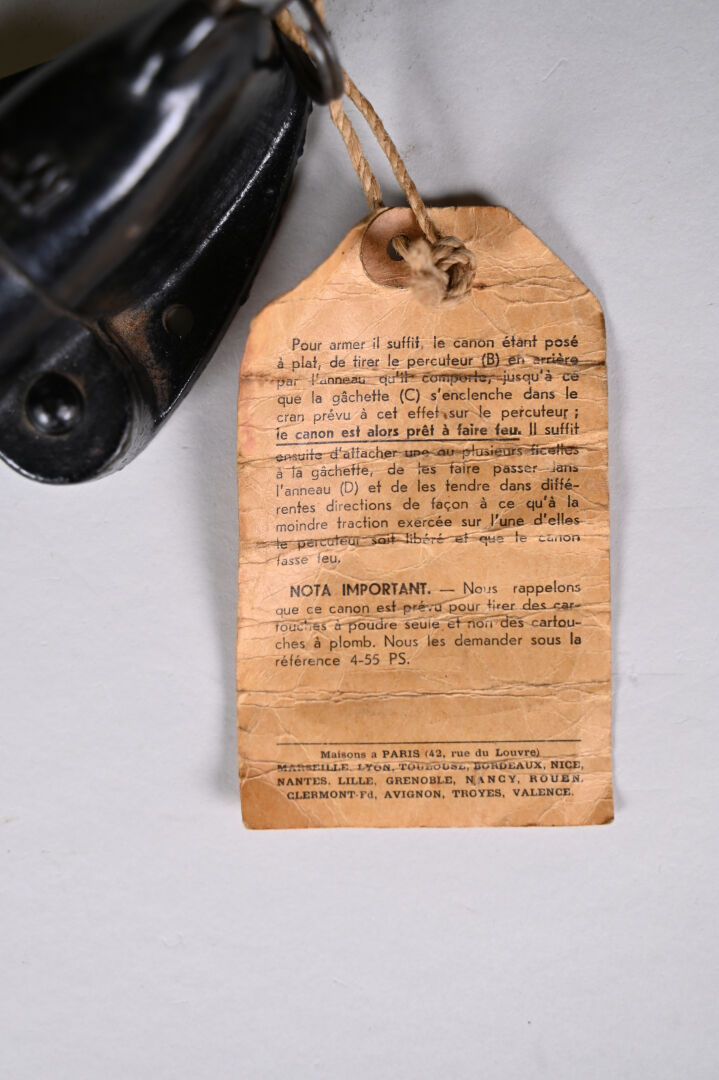 Pour armer il suffit, le canon étant posé
à plat, de tirer le percuteur (B) en arrière
par l'anneau qu'il comporte, jusqu'à ce
que la gâchette (C) s'enclenche dans le
cran prévu à cet effet sur le percuteur ;
le canon est alors prêt à faire feu. Il suffit
ensuite d'attacher une ou plusieurs ficelles
à la gâchette, de les faire passer dans
l'anneau (D) et de les tendre dans diffé-
rentes directions de façon à ce qu'à la
moindre traction exercée sur l'une d'elles
le percuteur soit libéré et que le canon
fasse feu.
NOTA IMPORTANT. — Nous rappelons
que ce canon est prévu pour tirer des car-
touches à poudre seule et non des cartou-
ches à plomb. Nous les demander sous la
référence 4-55 PS.
Maisons a PARIS (42, rue du Louvre)
MARSEILLE, LYON, TOULOUSE, BORDEAUX, NICE,
NANTES, LILLE, GRENOBLE, NANCY, ROUEN,
CLERMONT-Fd, AVIGNON, TROYES, VALENCE.